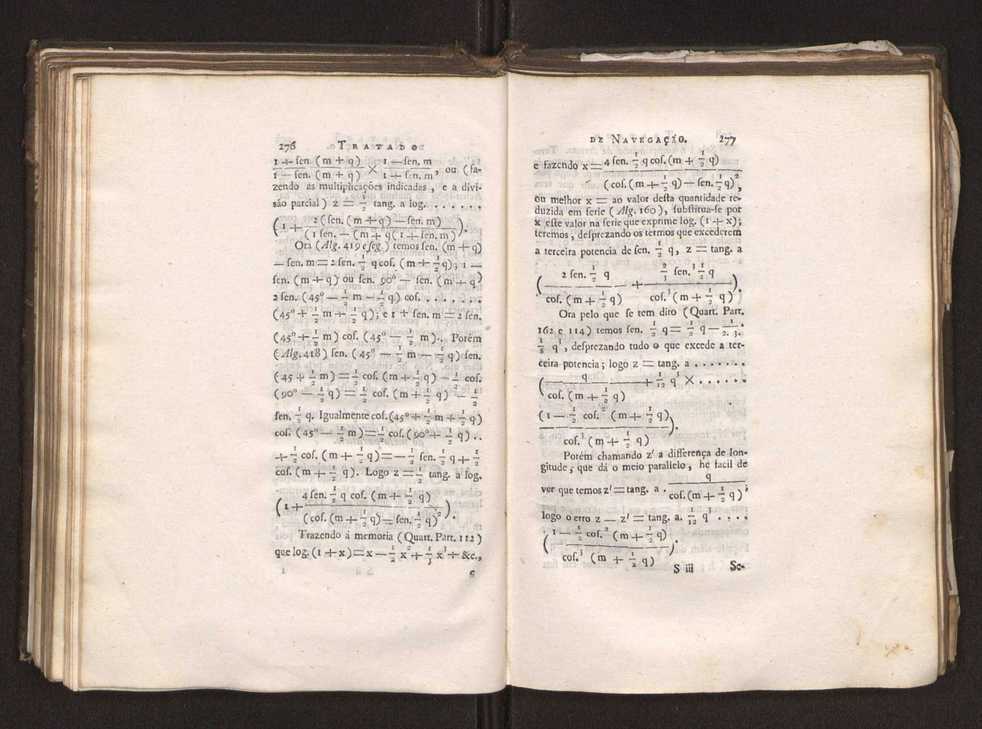 276 TRATADO
1 + sen. (m + q) / 1 − sen. (m + q) × 1 − sen. m / 1 + sen. m, ou (fa-
zendo as multiplicações indicadas, e a divi-
são parcial) z = 1/2 tang. a log. . . . . . .
(1 + 2 (sen. (m + q) − sen. m) / (1 sen. − (m + q) (1 + sen. m)).
Ora (Alg. 419 e seg.) temos sen. (m + q)
− sen. m = 2 sen. 1/2 q cos. (m + 1/2 q); 1 −
sen. (m + q) ou sen. 90° − sen. (m + q)
2 sen. (45° − 1/2 m − 1/2 q) cos. . . . . . . .
(45° + 1/2 m + 1/2 q); e 1 + sen. m = 2 sen.
(45° + 1/2 m) cos. (45° − 1/2 m). Porém
(Alg. 418) sen. (45° − 1/2 m − 1/2 q) sen.
(45 + 1/2 m) = 1/2 cos. (m + 1/2 q) − 1/2 cos.
(90° − 1/2 q) = 1/2 cos. (m + 1/2 q) − 1/2
sen. 1/2 q. Igualmente cos. (45° + 1/2 m + 1/2 q)
cos. (45° − 1/2 m) = 1/2 cos. (90° + 1/2 q) . .
+ 1/2 cos. (m + 1/2 q) = − 1/2 sen. 1/2 q + 1/2
cos. (m + 1/2 q). Logo z = 1/2 tang. a log.
(1 + 4 sen. 1/2 q cos. (m + 1/2 q) / (cos. (m + 1/2 q) − sen. 1/2 q)²).
Trazendo á memoria (Quart. Part. 112)
que log. (1 + x) = x − 1/2 x² + 1/3 x³ + &c.,
e
DE NAVEGAÇÃO. 277
e fazendo x = 4 sen. 1/2 q cos. (m + 1/2 q) / (cos. (m + 1/2 q) − sen. 1/2 q)²,
ou melhor x = ao valor desta quantidade re-
duzida em serie (Alg. 160), substitua-se por
x este valor na serie que exprime log. (1 + x);
teremos, desprezando os termos que excederem
a terceira potencia de sen. 1/2 q, z = tang. a
(2 sen. 1/2 q / cos. (m + 1/2 q) + 2/3 sen.³ 1/2 q / cos.³ (m + 1/2 q)).
Ora pelo que se tem dito (Quart. Part.
162 e 114) temos sen. 1/2 q = 1/2 q − 1/2. 3.
1/8 q³, desprezando tudo o que excede a ter-
ceira potencia; logo z = tang. a . . . . . . .
(q / cos. (m + 1/2 q) + 1/12 q³ × . . . . . .
(1 − 1/2 cos.² (m + 1/2 q)) / cos.³ (m + 1/2 q)).
Porém chamando z′ a differença de lon-
gitude, que dá o meio parallelo, he facil de
ver que temos z′ = tang. a . q / cos. (m + 1/2 q);
logo o erro z − z′ = tang. a. 1/12 q³ . . . .
(1 − 1/2 cos.² (m + 1/2 q) / cos.³ (m + 1/2 q)).
S iii Se-